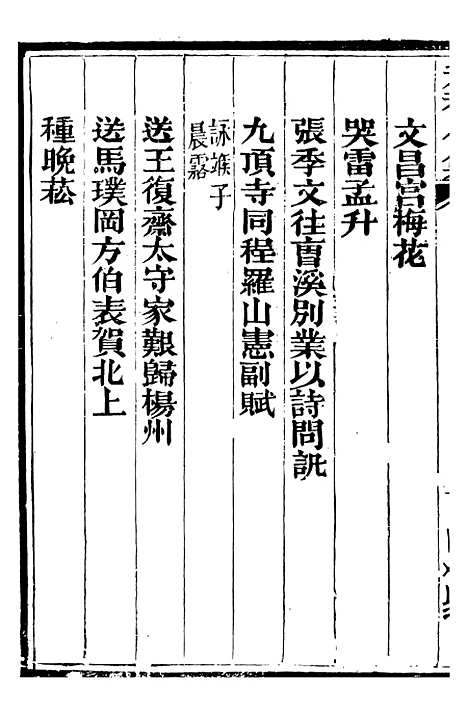 文昌宮梅花
哭雷孟升
張季文往曺溪別業以詩問訊
九頂寺同程羅山憲副賦
詠堠子
晨露
送王復齋太守家艱歸楊州
送馬璞岡方伯表賀北上
種晚菘